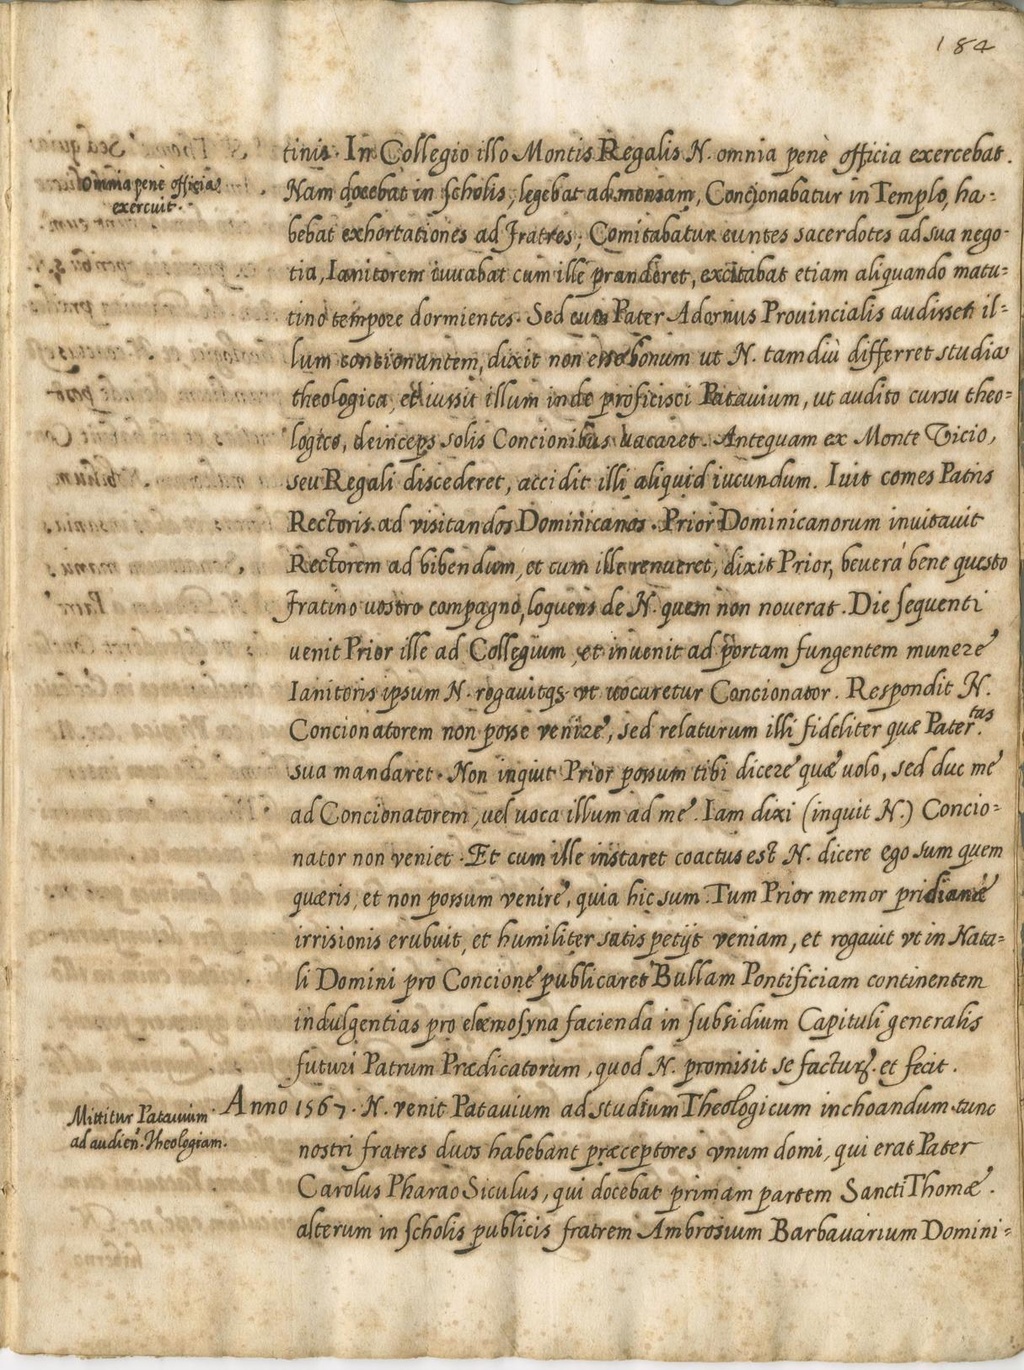 184
tinis. In Collegio illo Montis Regalis N. omnia penè officia exercebat.
Omnia penè officia
exercuit.
Nam docebat in scholis, legebat ad mensam, Concionabatur in Templo, ha-
bebat exhortationes ad Fratres, Comitabatur euntes sacerdotes ad sua nego-
tia, Ianitorem iuuabat cum ille pranderet, excitabat etiam aliquando matu-
tino tempore dormientes. Sed cum Pater Adornus Prouincialis audisset il-
lum concionantem, dixit non esse bonum ut N. tam diù differret studia
theologica, et iussit illum inde proficisci Patauium, ut audito cursu theo-
logico, deinceps solis Concionibus uacaret. Antequam ex Monte Vicio,
seu Regali discederet, accidit illi aliquid iucundum. Iuit comes Patris
Rectoris ad visitandos Dominicanos. Prior Dominicanorum inuitauit
Rectorem ad bibendum, et cum ille renueret, dixit Prior, beuerà bene questo
Fratino uostro compagno, loquens de N. quem non nouerat. Die sequenti
uenit Prior ille ad Collegium, et inuenit ad portam fungentem munere
Ianitoris ipsum N. rogauitq; vt uocaretur Concionator. Respondit N.
Concionatorem non posse venire, sed relaturum illi fideliter quæ Pater.tas
sua mandaret. Non inquit Prior possum tibi dicere quæ uolo, sed duc me
ad Concionatorem, uel uoca illum ad me. Iam dixi (inquit N.) Concio-
nator non veniet. Et cum ille instaret coactus est N. dicere ego sum quem
quæris, et non possum venire, quia hic sum. Tum Prior memor pridianæ
irrisionis erubuit, et humiliter satis petijt veniam, et rogauit vt in Nata-
li Domini pro Concione publicaret Bullam Pontificiam continentem
indulgentias pro elæmosyna facienda in subsidium Capituli generalis
futuri Patrum Prædicatorum, quod N. promisit se facturū. et fecit.
Mittitur Patauium
ad audien. Theologiam.
Anno 1567. N. venit Patauium ad studium Theologicum inchoandum. tunc
nostri fratres duos habebant præceptores vnum domi, qui erat Pater
Carolus Pharao Siculus, qui docebat primam partem Sancti Thomæ.
alterum in scholis publicis fratrem Ambrosium Barbauarium Domini-